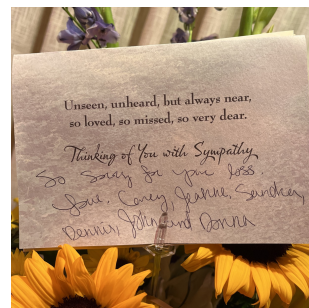 Unseen, unheard, but always near,
so loved, so missed, so very dear.
Thinking of You with Sympathy
So sorry for your loss.
Love, Carey, Jeanne, Sandra,
Dennis, John and Donna